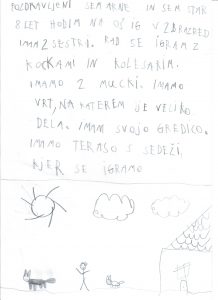 POZDRAVLJENI SEM ARNE IN SEM STAR
8 LET HODIM NA OŠ IG V 2. RAZRED
IMAM 2 SESTRI. RAD SE IGRAM Z
KOCKAMI IN KOLESARIM.
IMAMO 2 MUCKI. IMAMO
VRT, NA KATEREM JE VELIKO
DELA. IMAM SVOJO GREDICO.
IMAMO TERASO S SEDEŽI
KJER SE IGRAMO